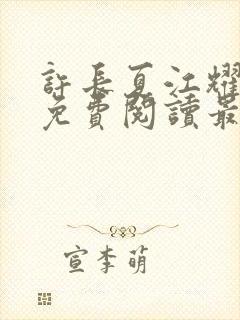 許長夏江耀
免費閱讀最
宣李萌